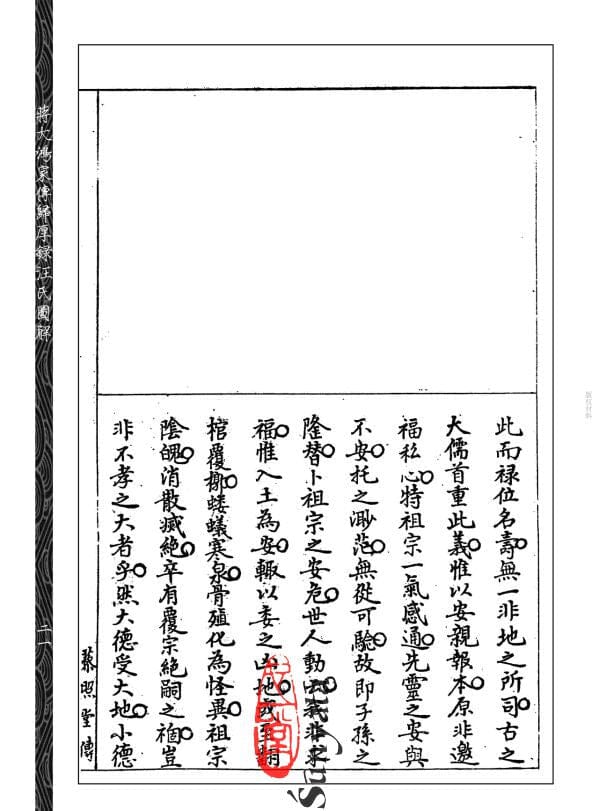 此而禄位名壽無一非地之所司古之
大儒首重此義惟以安親報本原非邀
福私心特祖宗一氣感通先靈之安與
不安托之渺茫無從可驗故即子孫之
隆替卜祖宗之安危世人動云我非求
福惟入土為安輒以委之凶地或至翻
棺覆槨螻蟻寒泉骨殖化為怪異祖宗
陰魄消散滅絕卒有覆宗絕嗣之禍豈
非不孝之大者乎然大德受大地小德
蔡照堂傳
蔣大鴻家傳歸厚録汪氏圖解
二一